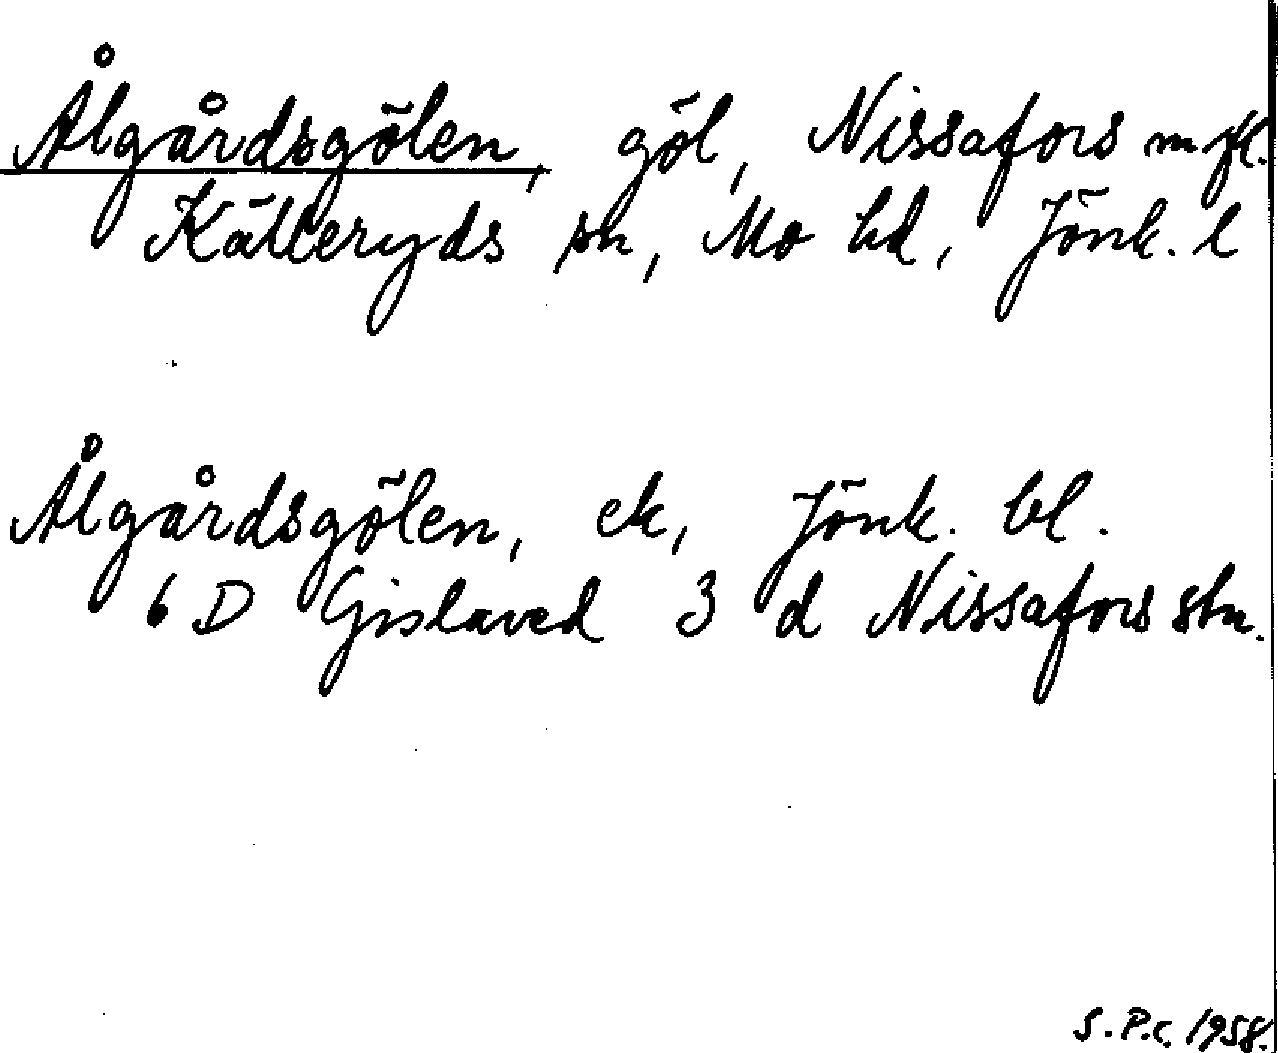 Ålgårdsgölen, göl, Nissafors m.fl.
Källeryds sn, Mo hd, Jönk. l
Ålgårdsgölen, ek, Jönk. bl.
6 D Gislaved 3 d Nissafors stn.
S.P.C. 1958.